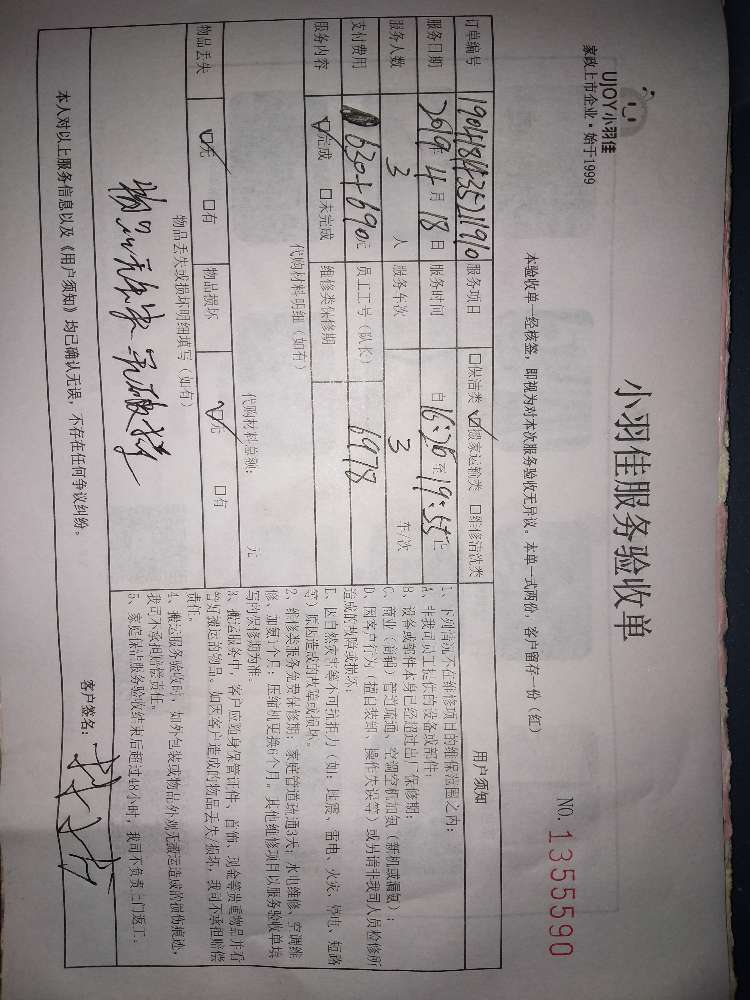 UJOY小羽佳
家政上市企业·始于1999
小羽佳服务验收单
NO. 1355590
本验收单一经核签，即视为对本次服务验收无异议。本单一式两份，客户留存一份（红）
订单编号 1904181435211910 服务项目 □保洁类 ☑搬家运输类 □维修清洗类
服务日期 2019年 4 月 18 日 服务时间 自 16:26 至 19:55 止
服务人数 3 人 服务车次 3 车/次
支付费用 630+690元 员工工号（队长） 6978
服务内容 ☑完成 □未完成 维修类保修期
代购材料明细（如有）
代购材料总额： 元
物品丢失 ☑无 □有 物品损坏 ☑无 □有
物品丢失或损坏明细填写（如有）
物品无丢失 无破损
用户须知
1、下列情况不在维修项目的维保范围之内：
A、非我司员工提供的设备或部件；
B、设备或部件本身已经超过出厂保修期；
C、商业（商铺）管道疏通、空调空机加氨（新机或漏氨）；
D、因客户行为（擅自装卸、操作失误等）或另请非我司人员检修所
造成的故障或损坏；
E、因自然灾害等不可抗拒力（如：地震、雷电、火灾、停电、短路
等）原因造成的故障或损坏。
2、维修类服务免费保修期：家庭管道疏通3天；水电维修、空调维
修、加氨1个月；压缩机更换6个月。其他维修项目以服务验收单填
写的保修期为准。
3、搬运服务中，客户应随身保管证件、首饰、现金等贵重物品并看
管好搬运的物品。如因客户造成的物品丢失/损坏，我司不承担赔偿
责任。
4、搬运服务验收时，如外包装或物品外观无搬运造成的损伤痕迹，
我司不承担赔偿责任。
5、家庭保洁服务验收结束后超过48小时，我司不负责上门返工。
本人对以上服务信息以及《用户须知》均已确认无误，不存在任何争议纠纷。
客户签名：